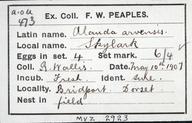 a.o.u
473
Ex. Coll. F. W. PEAPLES.
Latin name. Alauda arvensis.
Local name. Skylark
Eggs in set. 4 Set mark. 6/4
Coll. G. Wallis Date. May 10th 1907
Incub. Fresh Ident. sure.
Locality. Bridport Dorset
Nest in field
MVZ 2923